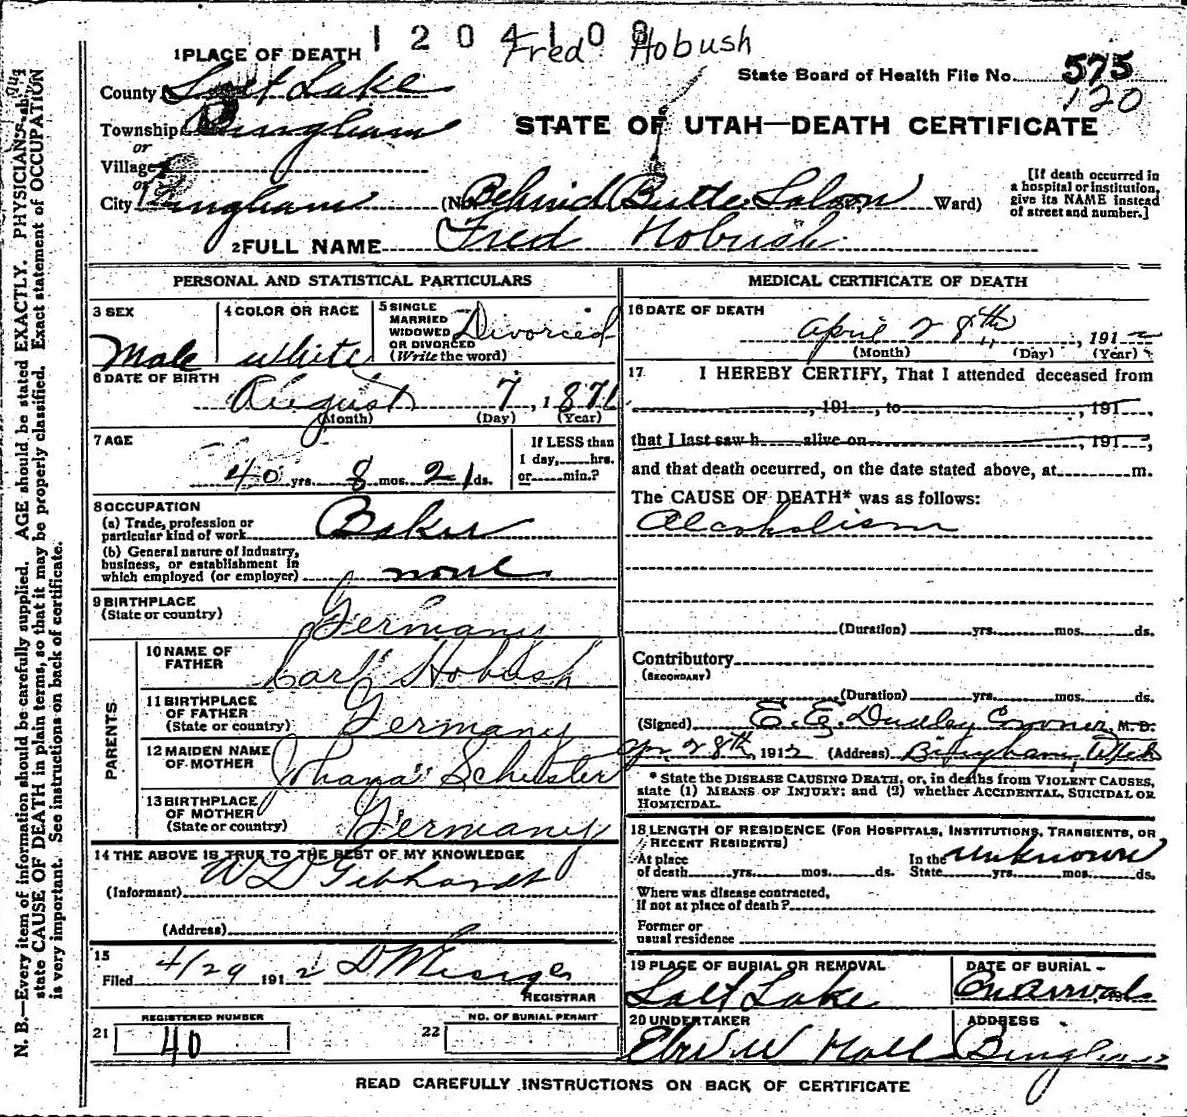 1204108 Fred Hobush
1 PLACE OF DEATH
State Board of Health File No. 575
120
County Salt Lake
Township Bingham
STATE OF UTAH—DEATH CERTIFICATE
or
Village
or
City Bingham (No Behind Butte Saloon Ward)
[If death occurred in a hospital or institution, give its NAME instead of street and number.]
2 FULL NAME Fred Hobush
PERSONAL AND STATISTICAL PARTICULARS
3 SEX
Male
4 COLOR OR RACE
White
5 SINGLE
MARRIED
WIDOWED
OR DIVORCED
(Write the word)
Divorced
6 DATE OF BIRTH
August 7, 1871
(Month) (Day) (Year)
7 AGE
40 yrs. 8 mos. 21 ds.
If LESS than
1 day, hrs.
or min.?
8 OCCUPATION
(a) Trade, profession or
particular kind of work Baker
(b) General nature of industry,
business, or establishment in
which employed (or employer) none
9 BIRTHPLACE
(State or country) Germany
PARENTS
10 NAME OF
FATHER Carl Hobush
11 BIRTHPLACE
OF FATHER
(State or country) Germany
12 MAIDEN NAME
OF MOTHER Johana Schuster
13 BIRTHPLACE
OF MOTHER
(State or country) Germany
14 THE ABOVE IS TRUE TO THE BEST OF MY KNOWLEDGE
(Informant) W D Gebhardt
(Address)
15
Filed 4/29 1912
REGISTRAR
REGISTERED NUMBER
21 40
NO. OF BURIAL PERMIT
22
MEDICAL CERTIFICATE OF DEATH
16 DATE OF DEATH
April 28th, 1912
(Month) (Day) (Year)
17 I HEREBY CERTIFY, That I attended deceased from
, 191 , to , 191 ,
that I last saw h alive on , 191 ,
and that death occurred, on the date stated above, at m.
The CAUSE OF DEATH* was as follows:
Alcoholism
(Duration) yrs. mos. ds.
Contributory
(SECONDARY)
(Duration) yrs. mos. ds.
(Signed) E. E. Dudley Coroner, M. D.
Apr 28th, 1912 (Address) Bingham, Utah
* State the DISEASE CAUSING DEATH, or, in deaths from VIOLENT CAUSES,
state (1) MEANS OF INJURY; and (2) whether ACCIDENTAL, SUICIDAL OR
HOMICIDAL.
18 LENGTH OF RESIDENCE (FOR HOSPITALS, INSTITUTIONS, TRANSIENTS, OR
RECENT RESIDENTS)
At place
of death yrs. mos. ds.
In the
State yrs. mos. ds.
unknown
Where was disease contracted,
if not at place of death?
Former or
usual residence
19 PLACE OF BURIAL OR REMOVAL
Salt Lake
DATE OF BURIAL
On Arrival
20 UNDERTAKER
Eber W Hall
ADDRESS
Bingham
READ CAREFULLY INSTRUCTIONS ON BACK OF CERTIFICATE
N. B.—Every item of information should be carefully supplied. AGE should be stated EXACTLY. PHYSICIANS should
state CAUSE OF DEATH in plain terms, so that it may be properly classified. Exact statement of OCCUPATION
is very important. See instructions on back of certificate.